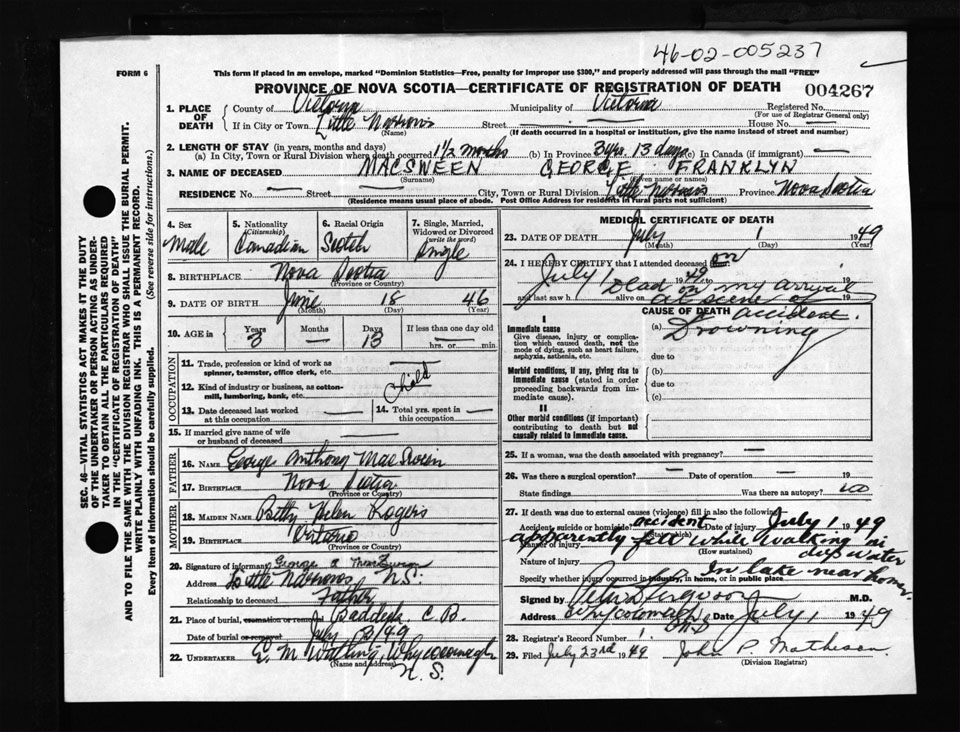 46-02-005237
FORM 6
This form if placed in an envelope, marked "Dominion Statistics—Free, penalty for improper use $300," and properly addressed will pass through the mail "FREE"
PROVINCE OF NOVA SCOTIA—CERTIFICATE OF REGISTRATION OF DEATH
004267
1. PLACE OF DEATH County of Victoria Municipality of Victoria Registered No.
(For use of Registrar General only)
If in City or Town Little Narrows Street — House No. —
(Name) (If death occurred in a hospital or institution, give the name instead of street and number)
2. LENGTH OF STAY (in years, months and days)
(a) In City, Town or Rural Division where death occurred 1 1/2 months (b) In Province 3 yrs. 13 days (c) In Canada (if immigrant) —
3. NAME OF DECEASED MACSWEEN GEORGE FRANKLYN
(Surname) (Given name or names)
RESIDENCE No. — Street — City, Town or Rural Division Little Narrows Province Nova Scotia
(Residence means usual place of abode. Post Office Address for residents in rural parts not sufficient)
SEC. 46—VITAL STATISTICS ACT MAKES IT THE DUTY
OF THE UNDERTAKER OR PERSON ACTING AS UNDER-
TAKER TO OBTAIN ALL THE PARTICULARS REQUIRED
IN THE "CERTIFICATE OF REGISTRATION OF DEATH"
AND TO FILE THE SAME WITH THE DIVISION REGISTRAR WHO SHALL ISSUE THE BURIAL PERMIT.
WRITE PLAINLY WITH UNFADING INK. THIS IS A PERMANENT RECORD.
Every item of information should be carefully supplied. (See reverse side for instructions.)
4. Sex
Male
5. Nationality
(Citizenship)
Canadian
6. Racial Origin
Scotch
7. Single, Married,
Widowed or Divorced
(write the word)
Single
8. BIRTHPLACE Nova Scotia
(Province or Country)
9. DATE OF BIRTH June 18 46
(Month) (Day) (Year)
10. AGE in Years Months Days If less than one day old
3 — 13 hrs. or min.
OCCUPATION
11. Trade, profession or kind of work as
spinner, teamster, office clerk, etc. —
12. Kind of industry or business, as cotton-
mill, lumbering, bank, etc. Child
13. Date deceased last worked
at this occupation —
14. Total yrs. spent in
this occupation —
15. If married give name of wife
or husband of deceased —
FATHER
16. NAME George Anthony MacSween
17. BIRTHPLACE Nova Scotia
(Province or Country)
MOTHER
18. MAIDEN NAME Betty Helen Rogers
19. BIRTHPLACE Ontario
(Province or Country)
20. Signature of informant George A MacSween
Address Little Narrows N.S.
Relationship to deceased Father
21. Place of burial, cremation or removal Baddeck, C. B.
Date of burial or removal July 3/49
22. UNDERTAKER E. M Watling, Whycocomagh
(Name and address)
N.S.
MEDICAL CERTIFICATE OF DEATH
23. DATE OF DEATH July 1 1949
(Month) (Day) (Year)
24. I HEREBY CERTIFY that I attended deceased from on
July 1 1949 to 19
and last saw h alive on 19
Dead on my arrival
at scene of
accident.
CAUSE OF DEATH
I
Immediate cause
Give disease, injury or complica-
tion which caused death, not the
mode of dying, such as heart failure,
asphyxia, asthenia, etc.
(a) Drowning
due to
Morbid conditions, if any, giving rise to
immediate cause (stated in order
proceeding backwards from im-
mediate cause).
(b)
due to
(c)
II
Other morbid conditions (if important)
contributing to death but not
causally related to immediate cause.
25. If a woman, was the death associated with pregnancy? —
26. Was there a surgical operation? — Date of operation — 19
State findings Was there an autopsy? no
27. If death was due to external causes (violence) fill in also the following:
Accident, suicide or homicide? accident Date of injury July 1 1949
(State which)
Manner of injury apparently fell while walking in
(How sustained) deep water
Nature of injury
Specify whether injury occurred in industry, in home, or in public place In lake near home.
Signed by Ferguson M.D.
Address Whycocomagh N.S. Date July 1, 1949
28. Registrar's Record Number 1.
29. Filed July 23rd 1949 John P. Matheson
(Division Registrar)